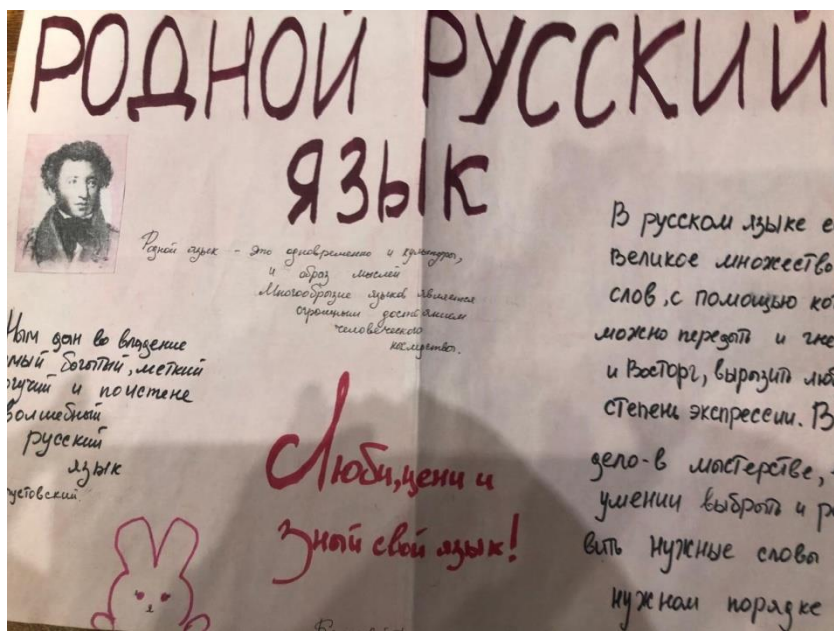 РОДНОЙ РУССКИЙ
ЯЗЫК
Родной язык - это одновременно и культура,
и образ мыслей
Многообразие языков является
огромным достоянием
человеческого
наследства.
Нам дан во владение
мый богатый, меткий
огучий и поистене
волшебный
русский
язык
устовский.
Люби, цени и
знай свой язык!
В русском языке е
Великое множество
слов, с помощью ко
можно передать и гне
и Восторг, вырázить люб
степень экспрессии. В
дело-в мастерстве,
умении выбрать и р
вить нужные словы
нужном порядке